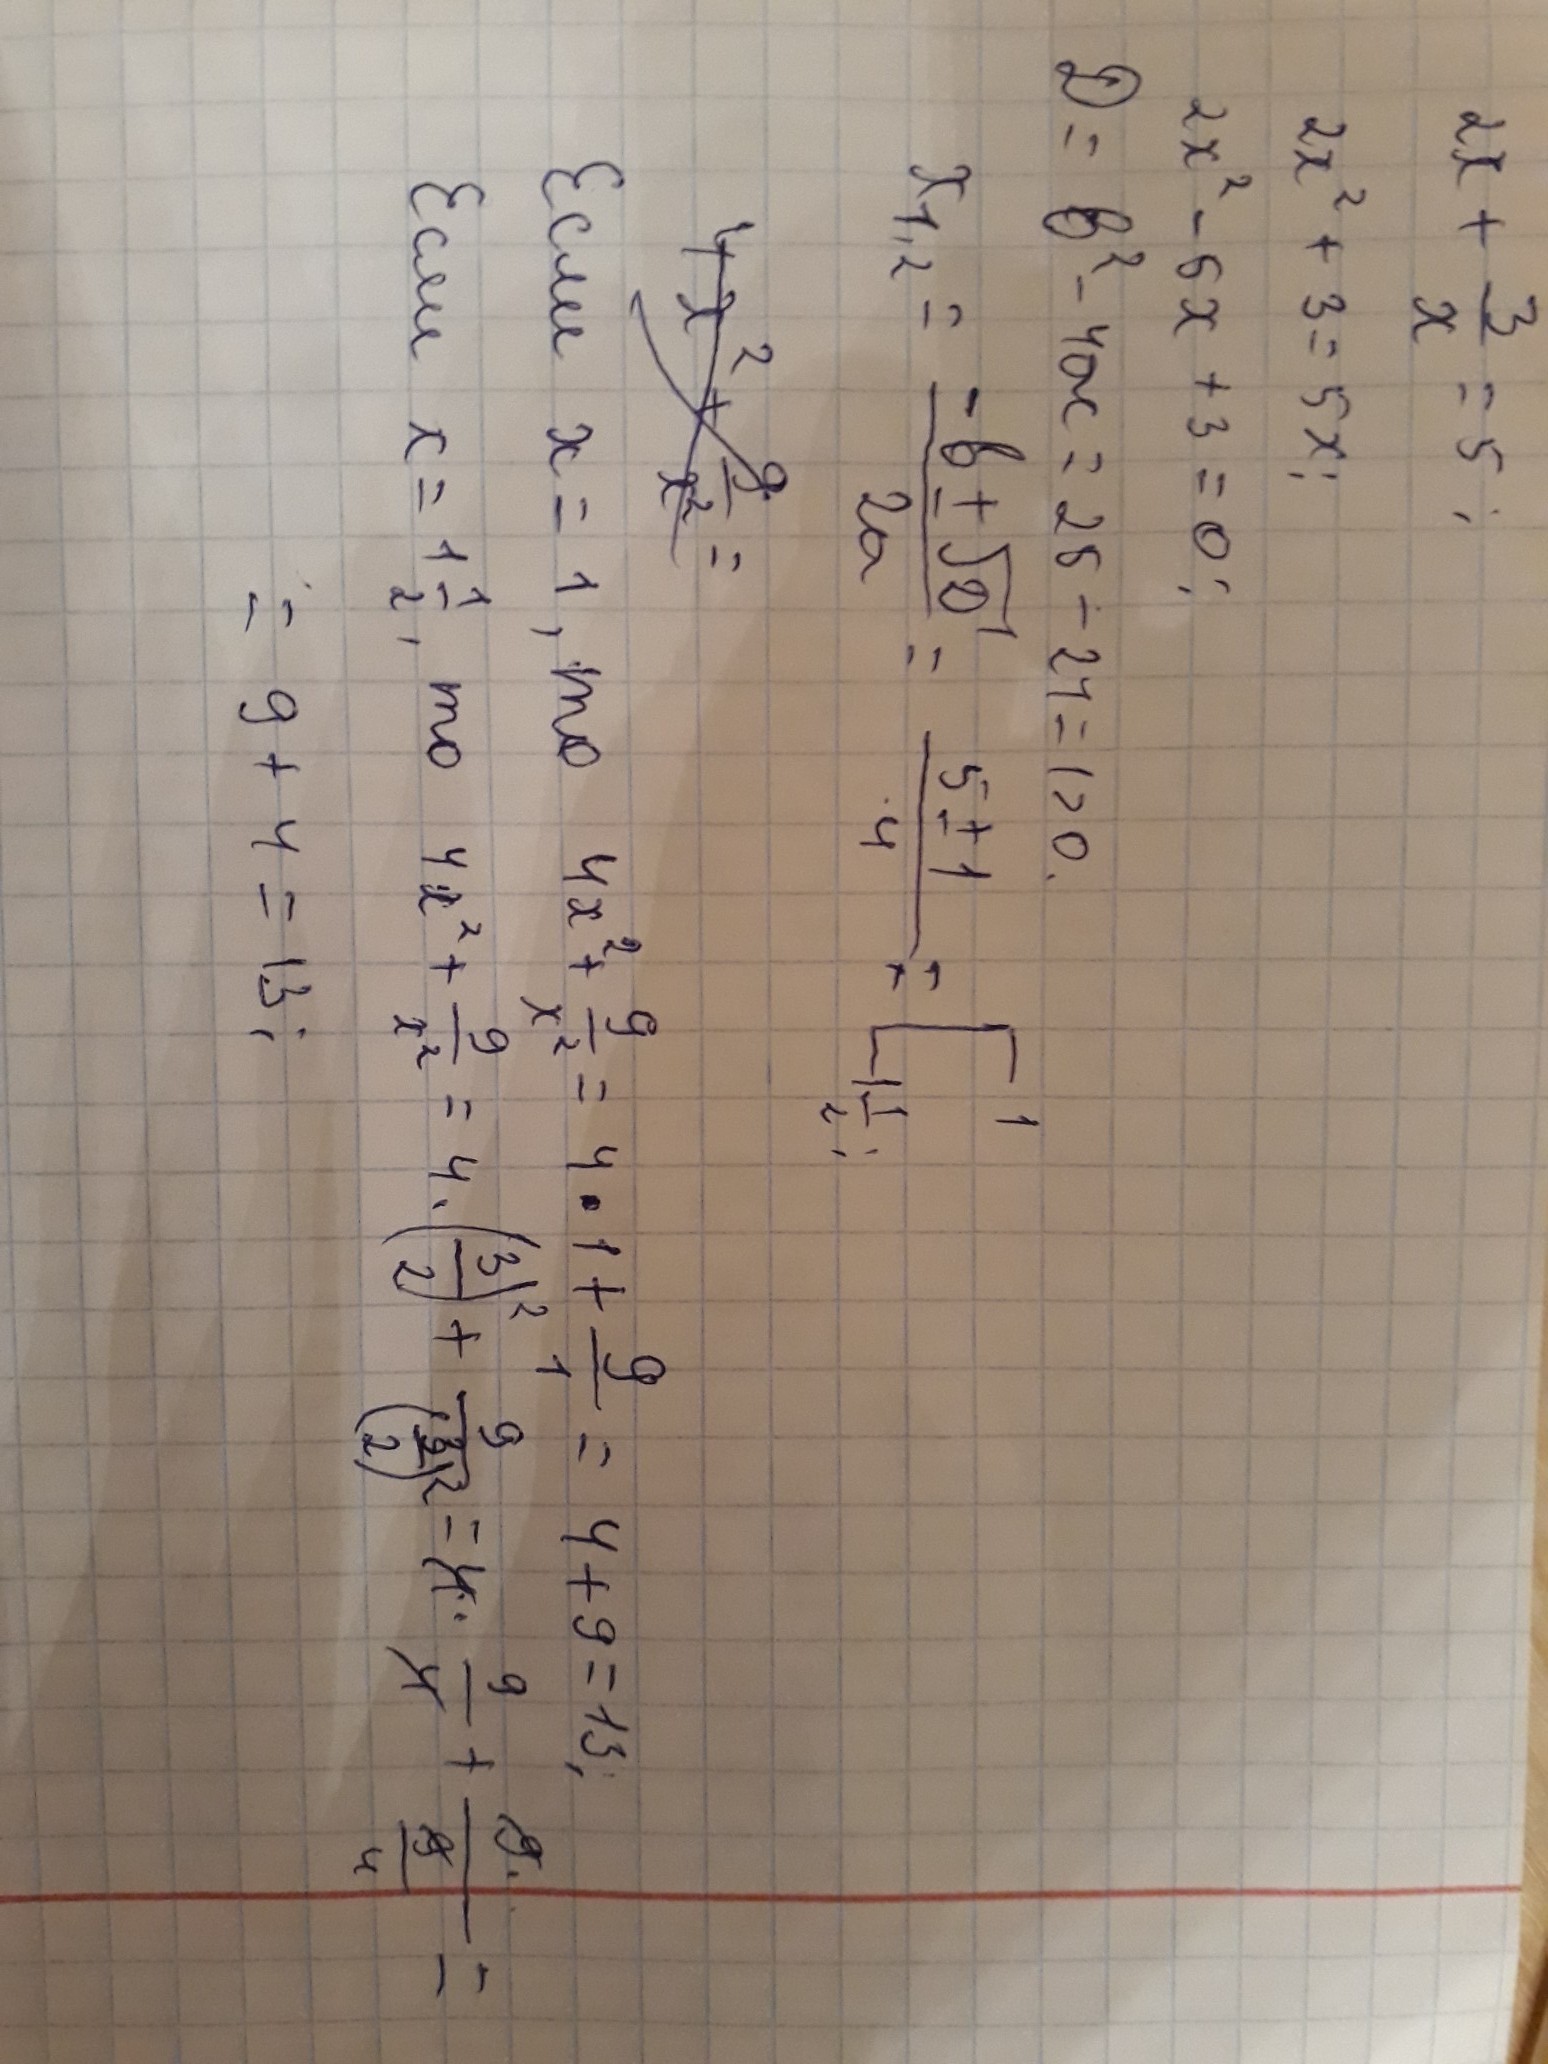 2x + 3/x = 5;
2x² + 3 = 5x;
2x² - 5x + 3 = 0;
D = b² - 4ac = 25 - 24 = 1 > 0.
x₁,₂ = (-b ± √D)/2a = (5 ± 1)/4 = [1; 1 1/2;
4x² + 9/x² =
Если x = 1, то 4x² + 9/x² = 4 · 1 + 9/1 = 4 + 9 = 13;
Если x = 1 1/2, то 4x² + 9/x² = 4 · (3/2)² + 9/(3/2)² = 4 · 9/4 + 9/(9/4) =
= 9 + 4 = 13;